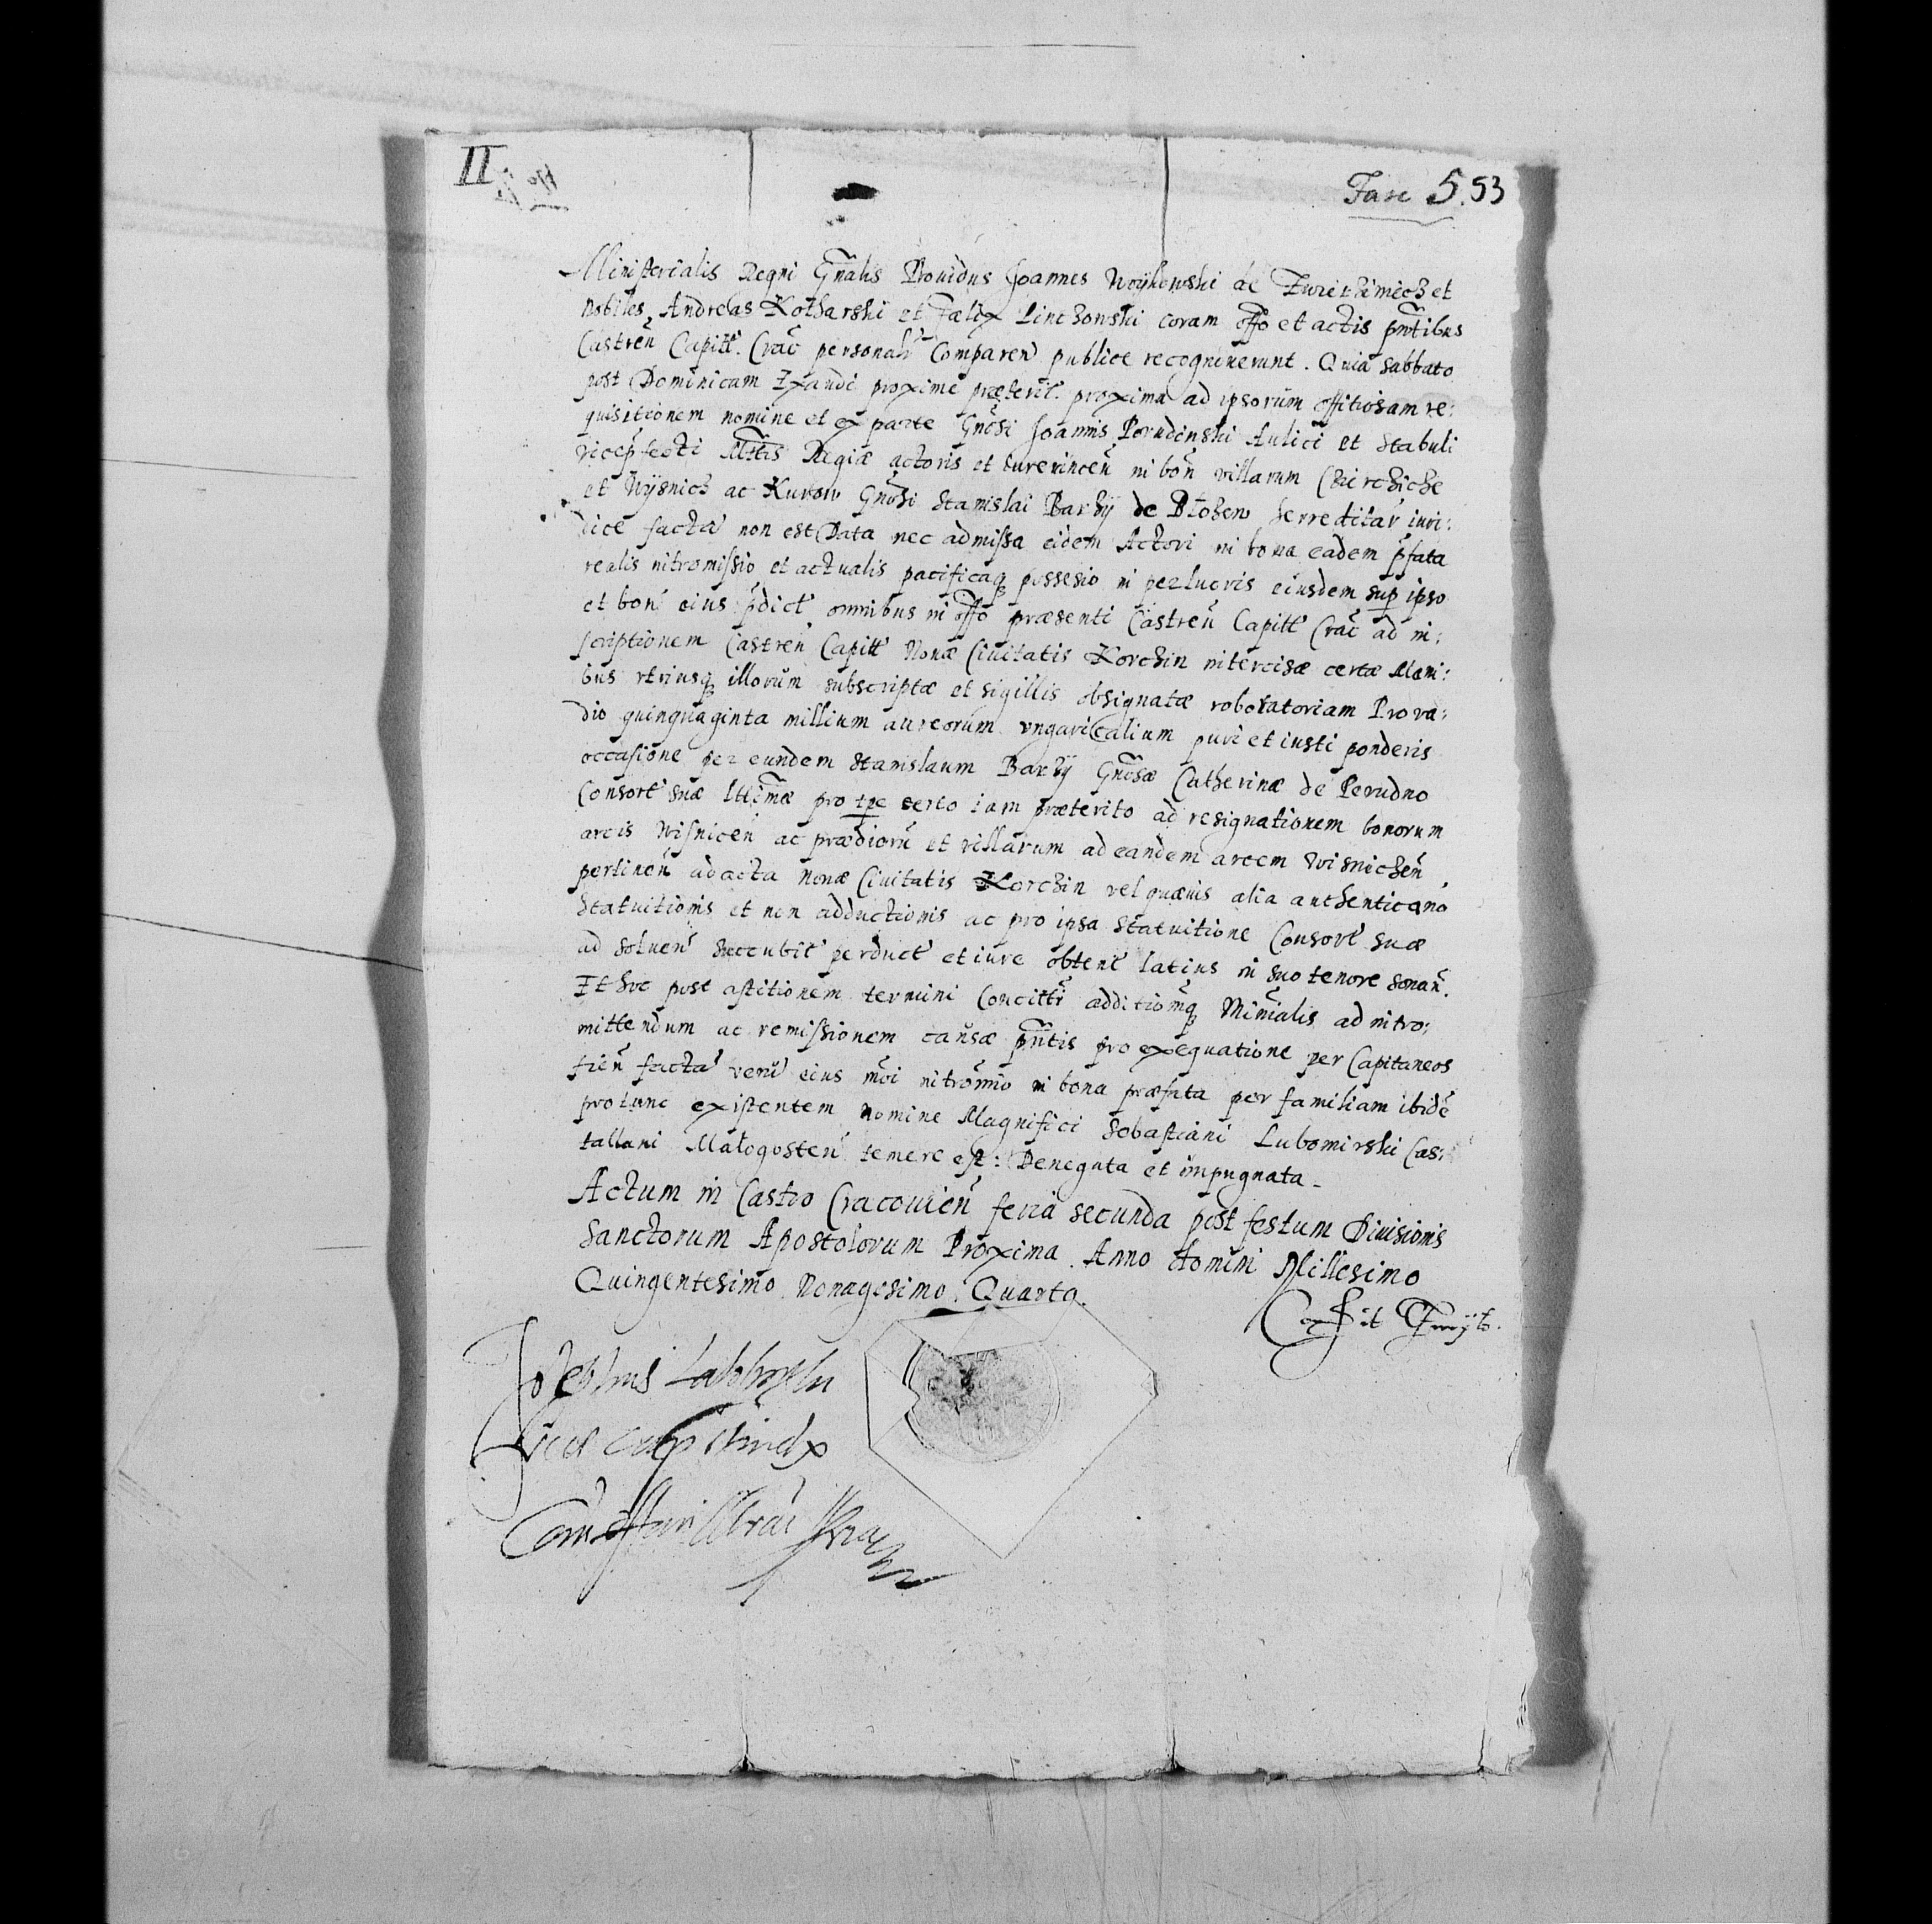 II
Fasc 5.53
Ministerialis Regni Gñalis Prouidus Joannes Woykowski de et
Nobiles Andreas Kotharski et Fælix Linczowski coram offo et actis pñtibus
Castreñ Capitt. Crac̃ personalr̃ Compareñ publice recognouerunt. Quia Sabbato
post Dominicam Exaudi proxime præterit. proxima ad ipsorum offitiosam re:
quisitionem nomine et ex parte Gñosi Joannis Porudinski Aulici et Stabuli
vicep̃fecti Mttis Regiæ actoris et iurevinceñ in boñ villarum Chierchiche
et Wysnicz ac Kurow Gñosi Stanislai Barzy de Blozew herreditar̃ iuri:
dice facta non est Data nec admissa eidem Actori in bona eadem p̃fata
realis intromissio et actualis pacificaq; possesio in perlucris eiusdem sup ipso
et bon̄ eius p̃dict̃ omnibus in offo præsenti Castreñ Capitt Crac̃ ad in:
scriptionem Castreñ Capitt Nouæ Ciuitatis Korchin intercisæ certæ Mani:
bus vtriusq; illorum subscriptæ et sigillis obsignatæ roboratoriam Pro va:
dio quinquaginta millium aureorum vngaricalium puri et iusti ponderis
occasione per eundem Stanislaum Barzy Gñosæ Catherinæ de Porudno
Consort̃ suæ lttimæ pro tpe certo iam præterito ad resignationem bonorum
arcis Wisniceñ ac prædioru̅ et villarum ad eandem arcem Wisnicheñ
pertineñ ad acta Nouæ Ciuitatis Korchin vel quævis alia authentica no̅
Statuitionis et non adductionis ac pro ipsa statuitione Consort̃ suæ
ad solueñ succubit̃ perduct̃ et iure obtent̃ latius in suo tenore sonañ.
Et hoc post astitionem termini Concittr̃ additiomq; Minr̃ialis ad intro:
mittendum ac remissionem causæ pñtis pro exequatione per Capitaneos
fieñ facta veru̅ eius moi intromio in bona præfata per familiam ibide̅
protunc existentem nomine Magnifici Sebastiani Lubomirski Cas:
tallani Małogosteñ temere est: Denegata et impugnata
Actum in Castro Cracouieñ feria secunda post festum Diuisionis
Sanctorum Apostolorum Proxima. Anno domini Millesimo
Quingentesimo Nonagesimo Quarto.